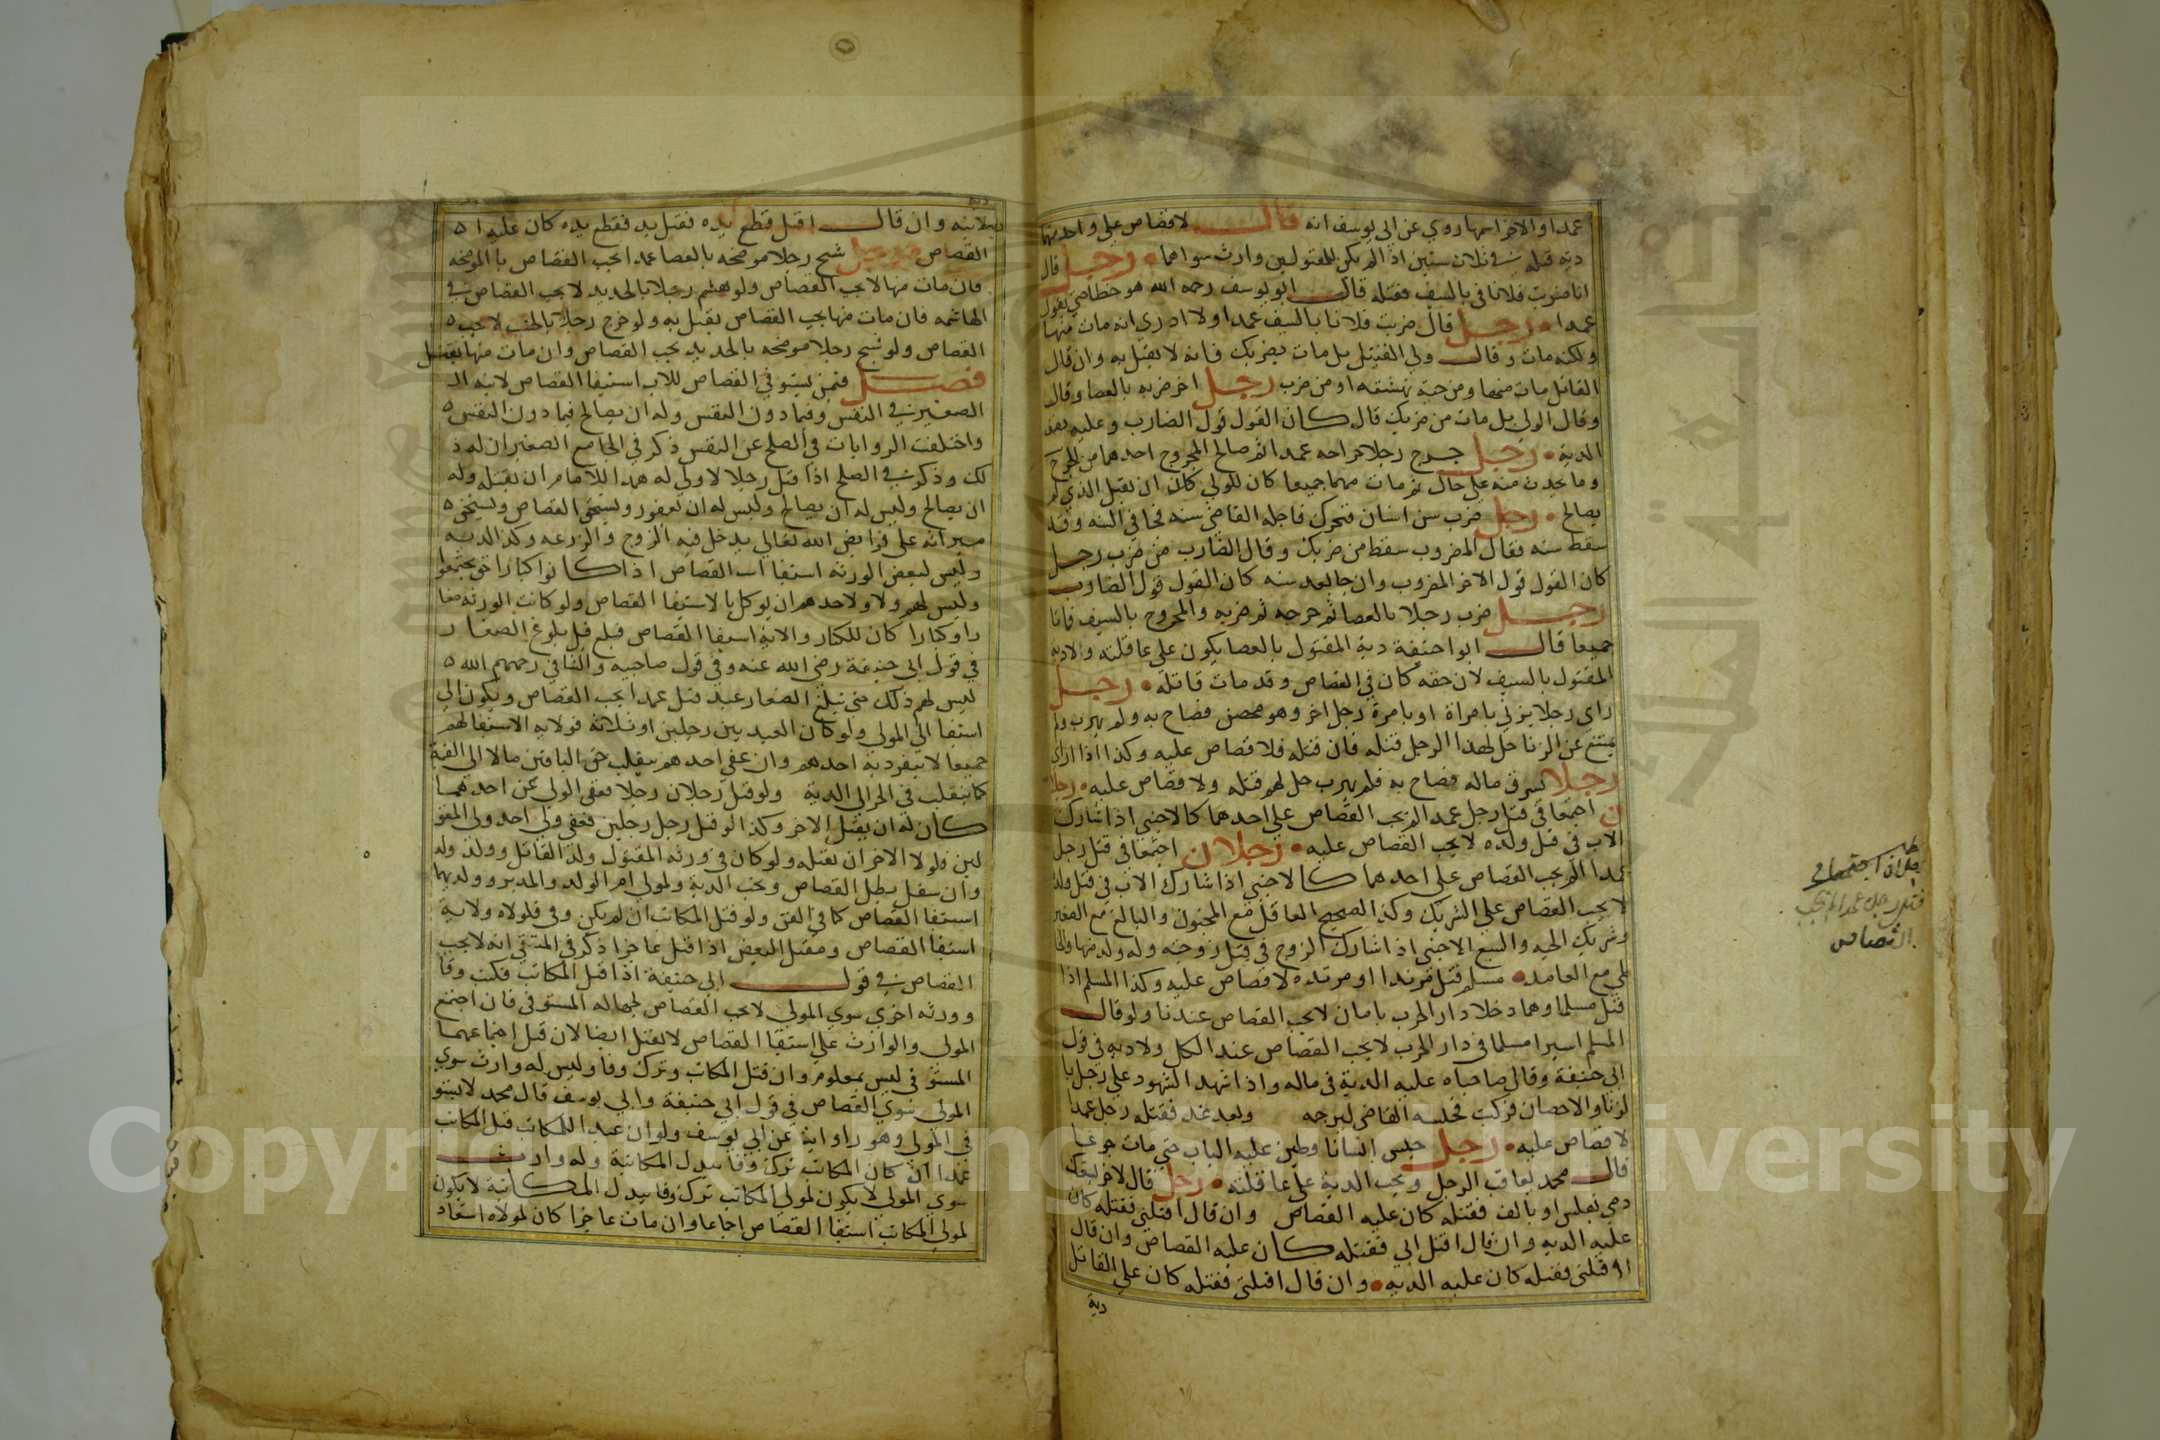 عمدا والاخر اسهما روي عن ابي يوسف انه قال لا قصاص على واحد منهما
دية قتله في ثلاث سنين اذا لم يكن للمقتولين وارث سواهما رجل قال
انا ضربت فلانا في بالسيف فقتله قال ابو يوسف رحمه الله هو خطا حتى يقول
عمدا رجل قال ضربت فلانا بالسيف عمدا ولا ادري انه مات منها
ولكنه مات وقال ولي القتيل بل مات بضربك فانه لا يقتل به وان قال
القاتل مات منها ومن حية نهشته او من ضرب رجل اخر ضربه بالعصا وقال
وقال الولي بل مات من ضربك قال كان القول قول الضارب وعليه نصف
الدية رجل جرح رجلا جراحه عمدا ثم صالح المجروح احدهما من الجرح
وما يحدث منه على حال ثم مات منهما جميعا كان للولي كان ان يقتل الذي لم
يصالح رجل ضرب سن انسان فتحرك فاجله القاضي سنه فجا في السنه وقد
سقط سنه فقال المضروب سقط من ضربك وقال الضارب من ضرب رجل
كان القول قول الاخر المضروب وان جا بعد سنه كان القول قول الضارب
رجل ضرب رجلا بالعصا ثم جرحه ثم ضربه والمجروح بالسيف فماتا
جميعا قال ابوا حنيفة دية المقتول بالعصا يكون على عاقلته ولا دية
المقتول بالسيف لان حقه كان في القصاص وقد مات قاتله رجل
راي رجلا يزني بامراة او بامرة رجل اخر وهو محصن فصاح به ولم يهرب ولم
يمتنع عن الزنا حل لهذا الرجل قتله فان قتله فلا قصاص عليه وكذا اذا راى
رجلا يسرق ماله فصاح به فلم يهرب حل لهم قتله ولا قصاص عليه رجلا
ن اجتمعا في قتل رجل عمدا لم يجب القصاص على احدهما كالاجنبي اذا شارك
الاب في قتل ولده لا يجب القصاص عليه رجلان اجتمعا في قتل رجل
عمدا لم يجب القصاص على احدهما كالاجنبي اذا شارك الاب في قتل ولده
لا يجب القصاص على الشريك وكذا الصحيح العاقل مع المجنون والبالغ مع الصغير
وشريك الحيه والسبع الاجنبي اذا شارك الزوج في قتل زوجته وله ولد منها والخا
طي مع العامد مسلم قتل مرتدا او مرتدة لا قصاص عليه وكذا المسلم اذا
قتل مسلما وهما دخلا دار الحرب بامان لا يجب القصاص عندنا ولو قال
المسلم اسيرا مسلما في دار الحرب لا يجب القصاص عند الكل ولا دية في قول
ابي حنيفة وقالا صاحباه عليه الدية في ماله واذا شهد الشهود على رجل با
لزنا والاحصان فزكت فحبسه القاضي ليرجمه وبعد غد فقتله رجل عمدا
لا قصاص عليه رجل حبس انسانا وطين عليه الباب حتى مات جوعا
قال محمد يعاقب الرجل ويجب الدية على عاقلته رجل قال لاخر بعتك
دمي بفلس او بالف فقتله كان عليه القصاص وان قال اقتلني فقتله كان
عليه الديه وان قال اقتل ابي فقتله كان عليه القصاص وان قال
فقتله كان عليه الديه وان قال اقتلني فقتله كان على القاتل
دية
اجتمعا في
قتل رجل عمدا لم يجب
القصاص
لابنه وان قال اقتل قطع يده فقتل يد فقطع يده كان عليه
القصاص رجل شج رجلا موضحه بالعصا عمدا يجب القصاص با الموضحه
فان مات منها لا يجب القصاص ولو هشم رجلا بالحديد لا يجب القصاص في
الهاشمه فان مات منها يجب القصاص يقتل به ولو جرح رجلا بالخشب لا يجب
القصاص ولو شج رجلا موضحه بالحديد يجب القصاص وان مات منها يقتل
فصل فيمن يستوفي القصاص للاب استيفا القصاص لابنه الـ
الصغير في النفس وفيما دون النفس وله ان يصالح فيما دون النفس
واختلفت الروايات في الصلح عن النفس ذكر في الجامع الصغير ان له ذ
لك وذكر في الصلح اذا قتل رجلا لا ولي له هذا للامام ان يقتله وله
ان يصالح وليس له ان يصالح وليس له ان يعفو ويستحق القصاص ويستحق
ميراثه على فرايض الله تعالى يدخل فيه الزوج والزوجه وكذا الدية
وليس لبعض الورثه استيفا القصاص اذا كانوا كبارا حتى يجتمعوا
وليس لهم ولا ولاحدهم ان يوكل با لاستيفا القصاص ولو كانت الورثه صغا
را وكبارا كان للكبار ولاية استيفا القصاص قبل بلوغ الصغار
في قول ابي حنيفة رضي الله عنه وفي قول صاحبيه والشافي رحمهم الله
ليس لهم ذلك حتى تبلغ الصغار عبد قتل عمدا يجب القصاص ويكون الي
استيفا الي المولي ولو كان العبد بين رجلين او ثلاثة فولاية الاستيفا لهم
جميعا لا ينفرد به احدهم وان عفي احدهم ينقلب حق الباقين مالا الى القيمة
كما ينقلب في الحر الى الدية ولو قتل رجلان رجلا فعفي الولي عن احدهما
كان له ان يقتل الاخر وكذا لو قتل رجل رجلين فعفي ولي احد ولي المقتو
لين فلولا الاخر ان يقتله ولو كان في ورثه المقتول ولد القاتل وولد ولد
وان سفل بطل القصاص ويجب الدية ولمولي ام الولد والمدبر وولديهما
استيفا القصاص كما في القن ولو قتل المكاتب ان لم يكن وفي فلمولاه ولاية
استيفا القصاص ومعتق البعض اذا قتل عاجزا ذكر في المنتقى انه لا يجب
القصاص في قول ابي حنيفة اذا قتل المكاتب فكتب وفا
وورثه اخرى سوي المولي لا يجب القصاص لجهالة المستوفي فان اجتمع
المولي والوارث على استيفا القصاص لا يقتل ايضا لان قبل اجتماعهما
المستوفي ليس بمعلوم وان قتل المكاتب وترك وفا وليس له وارث سوي
المولي سوي القصاص في قول ابي حنيفة وابي يوسف قال محمد لا يستو
في المولي وهو رواية عن ابي يوسف ولو ان عبد المكاتب قتل المكاتب
عمدا ان كان المكاتب ترك وفا ببدل المكاتبة وله وارث
سوي المولي لا يكون لمولي المكاتب ترك وفا ببدل المكاتبة لا يكون
لمولي المكاتب استيفا القصاص اجماعا وان مات عاجزا كان لمولاه استيفاد